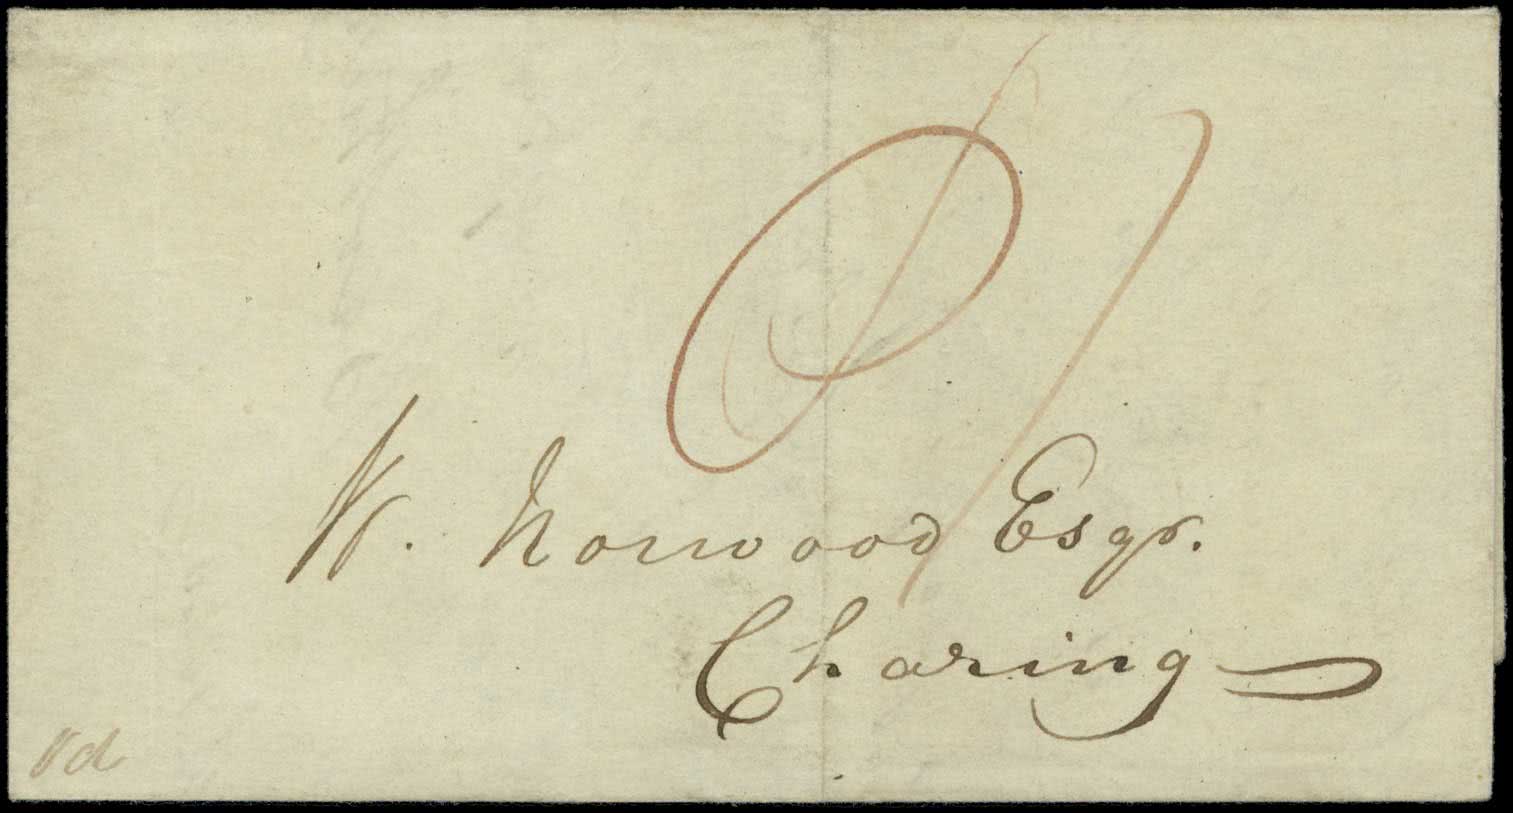 W. Norwood Esqr.
Charing